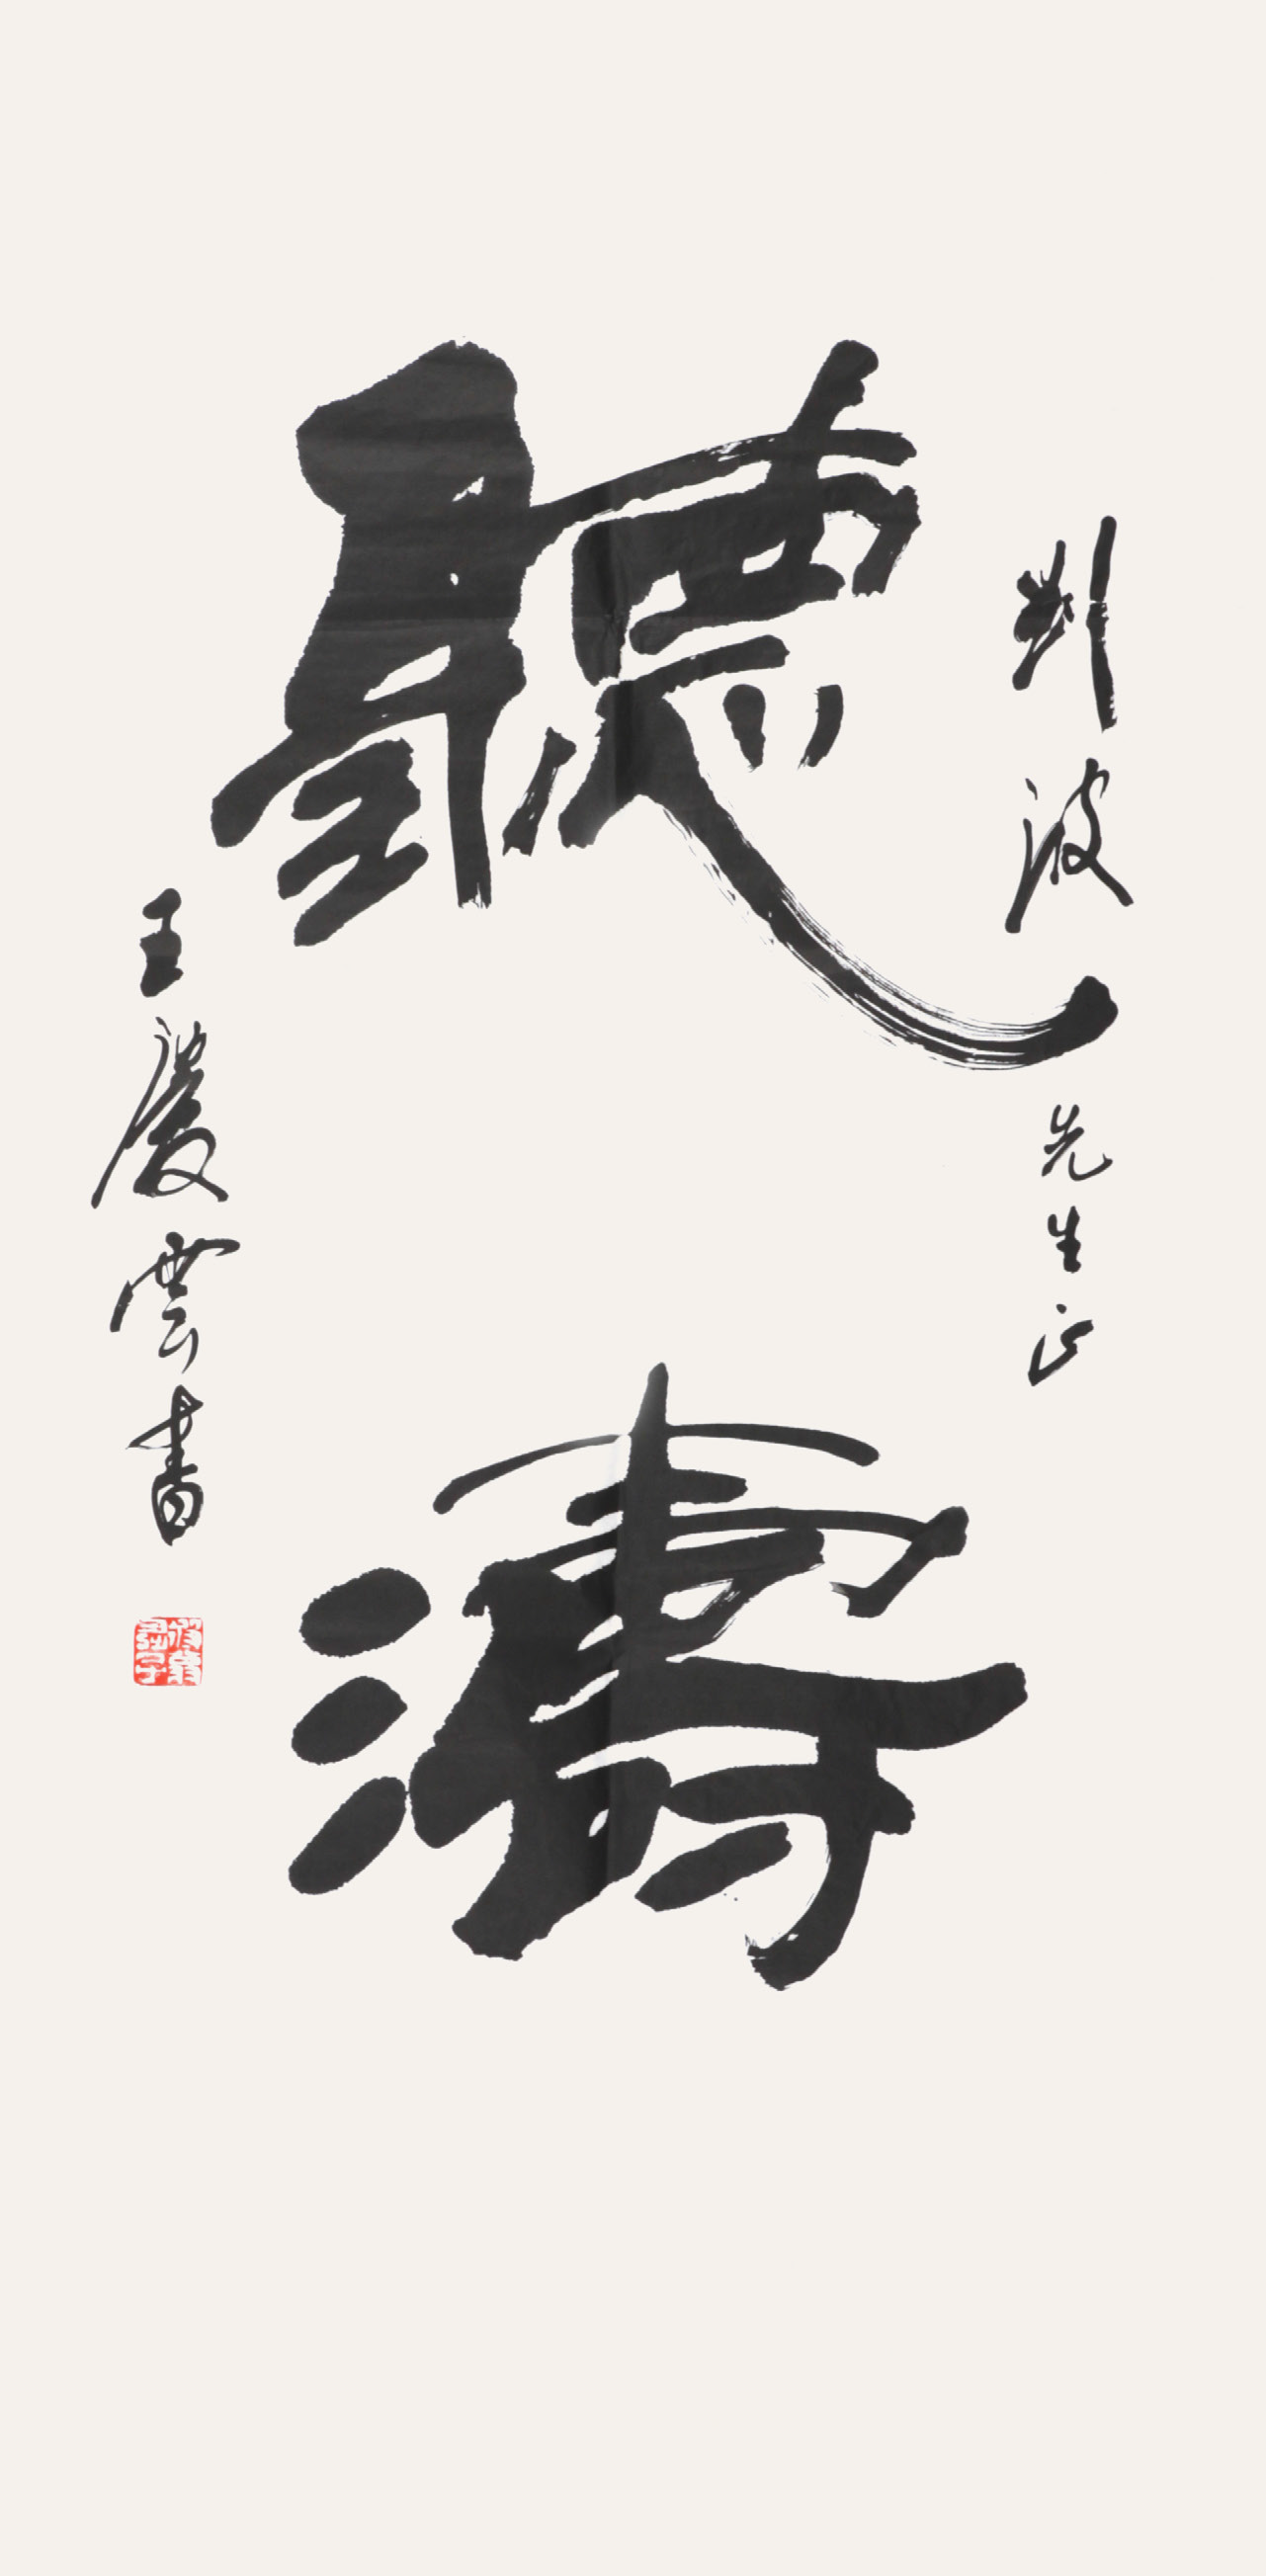 劉波先生正
聽濤
王慶雲書